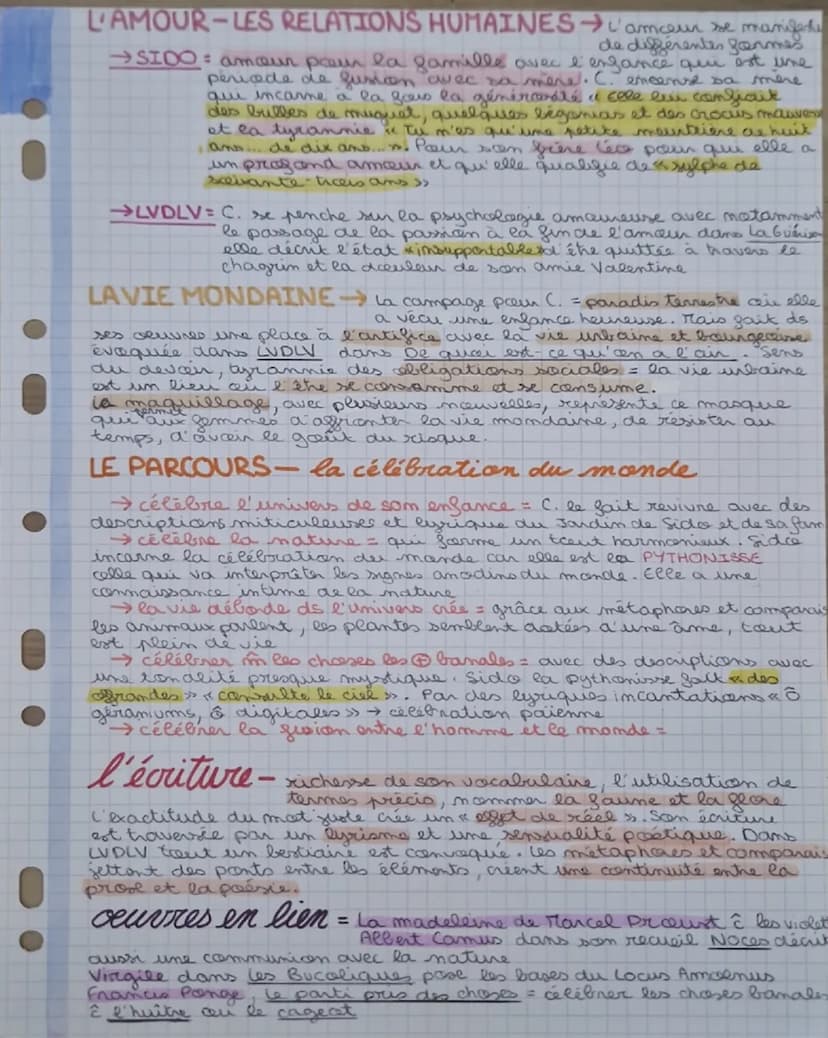 L'AMOUR – LES RELATIONS HUMAINES → L'amour se manifeste
de différentes formes
→ SIDO = amour pour la famille avec l'enfance qui est une
période de fusion avec sa mère. C. encense sa mère
qui incarne à la fois la générosité « elle lui confiait
des bulbes de muguet, quelques bégonias et des crocus mauves
et la tyrannie « Tu n'es qu'une petite meurtrière de huit
ans... de dix ans... ». Pour son frère Léo pour qui elle a
un profond amour et qu'elle qualifie de « sylphe de
soixante-trois ans »
→ LVDLV = C. se penche sur la psychologie amoureuse avec notamment
le passage de la passion à la fin de l'amour dans La Guérison
elle décrit l'état « insupportable » d'être quittée à travers le
chagrin et la douleur de son amie Valentine
LA VIE MONDAINE → La campagne pour C. = paradis terrestre où elle
a vécu une enfance heureuse. Mais fait ds
ses œuvres une place à l'artifice avec la vie urbaine et bourgeoise
évoquée dans LVDLV dans De quoi est-ce qu'on a l'air. Sens
du devoir, tyrannie des obligations sociales = la vie urbaine
est un lieu où l'être se consomme et se consume.
Le maquillage, avec plusieurs nouvelles, représente ce masque
qui permet aux femmes d'affronter la vie mondaine, de résister au
temps, d'avoir le goût du risque.
LE PARCOURS – la célébration du monde
→ célèbre l'univers de son enfance = C. le fait revivre avec des
descriptions miticuleuses et lyrique du Jardin de Sido et de sa fam
→ célèbre la nature = qui forme un tout harmonieux. Sido
incarne la célébration du monde car elle est la PYTHONISSE
celle qui va interpréter les signes anodins du monde. Elle a une
connaissance intime de la nature
→ la vie déborde ds l'univers crée = grâce aux métaphores et comparais
les animaux parlent, les plantes semblent dotées d'une âme, tout
est plein de vie
→ célébrer les choses les ⊕ banales = avec des descriptions avec
une tonalité presque mystique. Sido la pythonisse fait « des
offrandes » « consulte le ciel ». Par des lyriques incantations « Ô
géraniums, ô digitales » → célébration païenne
→ célébrer la fusion entre l'homme et le monde =
l'écriture – richesse de son vocabulaire, l'utilisation de
termes précis, nommer la faune et la flore
L'exactitude du mot juste crée un « effet de réel ». Son écriture
est traversée par un lyrisme et une sensualité poétique. Dans
LVDLV tout un bestiaire est convoqué. Les métaphores et comparais
jettent des ponts entre les éléments, créent une continuité entre la
prose et la poésie.
œuvres en lien = La madeleine de Marcel Proust ĉ les violet
Albert Camus dans son recueil Noces décrit
aussi une communion avec la nature
Virgile dans Les Bucoliques pose les bases du Locus Amoenus
Francis Ponge, le parti pris des choses = célébrer les choses banales
ĉ l'huître ou le cageot